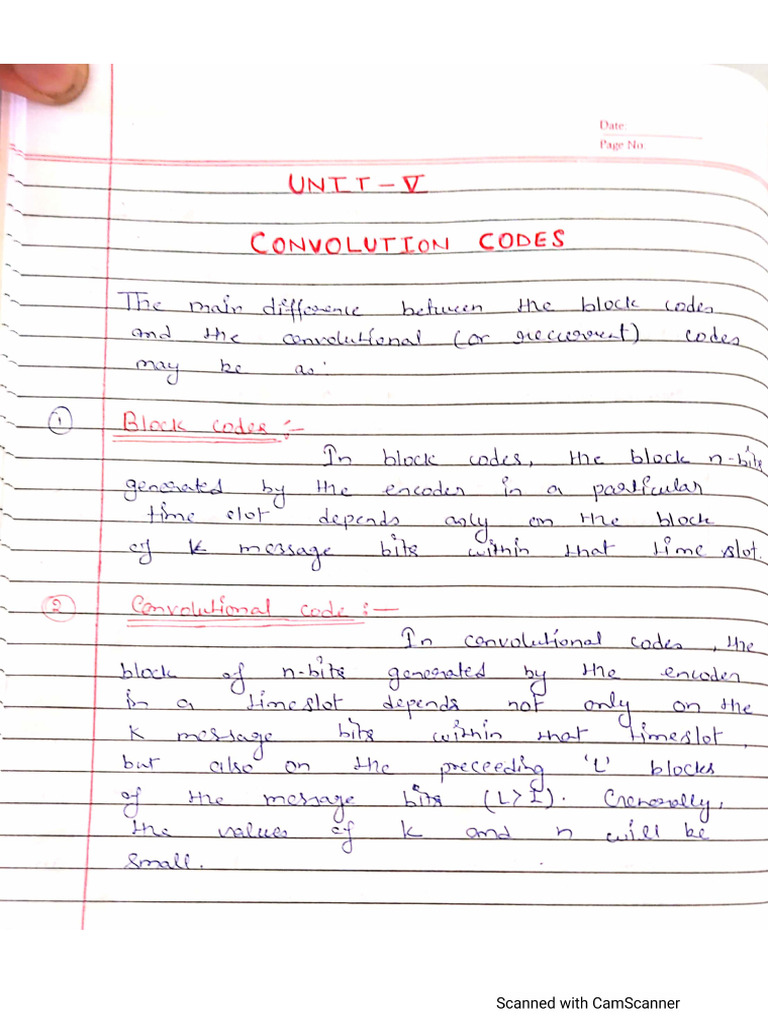 Date:
Page No:
UNIT-V
CONVOLUTION CODES
The main difference between the block codes
and the convolutional (or recurrent) codes
may be as:
① Block codes :-
In block codes, the block n-bits
generated by the encoder in a particular
time slot depends only on the block
of k message bits within that time slot.
② Convolutional code :-
In convolutional codes, the
block of n-bits generated by the encoder
in a timeslot depends not only on the
k message bits within that timeslot,
but also on the preceeding 'L' blocks
of the message bits (L>1). Generally,
the values of k and n will be
small.
Scanned with CamScanner